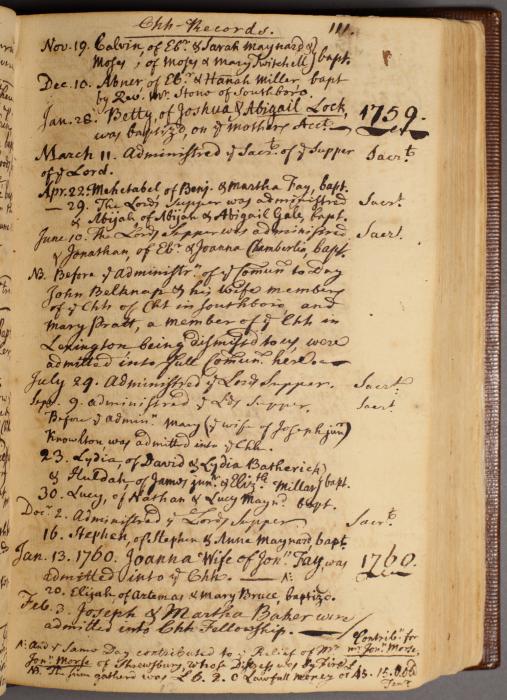 Chh-Records. 111.
Nov. 19. Calvin, of Ebr. & Sarah Maynard &
Moses, of Moses & Mary Twitchell bapt.
Dec. 10. Abner of Ebr. & Hanah Miller bapt
by Rev. Mr. Stone of Southboro.
Jan. 28. Betty, of Joshua & Abigail Lock, 1759.
was baptizd, on ye mothers Acct.
March 11. Administred ye Sacrt. of ye Supper Sacrt.
of ye Lord.
Apr. 22. Mehetabel of Benj. & Martha Fay, bapt.
— 29. The Lords Supper was administred Sacrt.
& Abijah of Abijah & Abigail Gale, bapt.
June 10. The Lords Supper was administred Sacrt.
& Jonathan, of Ebr. & Joanna Chamberlin, bapt.
NB. Before ye Administrn. of ye Comun. to Day
John Belknap & his wife members
of ye Chh of Cht in Southboro and
Mary Pratt, a member of ye Chh in
Lexington being dismissd to us, were
admitted into full Comun. here —
July 29. Administred ye Lords Supper. Sacrt.
Sepr. 9. administred ye Lds Supper. Sacrt
Before ye Adminn. Mary (ye wife of Joseph junr)
Knowlton was admitted into ye Chh.
23. Lydia, of David & Lydia Batherick
& Huldah, of James junr. & Elizth. Millar bapt.
30. Lucy, of Nathan & Lucy Maynd. bapt.
Decr. 2. Administred ye Lords Supper. Sacrt.
16. Stephen, of Stephen & Anne Maynard bapt.
Jan. 13. 1760. Joanna Wife of Jonn. Fay, was 1760.
admitted into ye Chh. —
20. Elijah of Artemas & Mary Bruce baptizd.
Feb. 3. Joseph & Martha Baker were
admitted into Chh Fellowship. —
And ye Same Day contributed to ye Relief of Mr. Contrib. for
Jonn. Morse of Shrewsbury, whose Distress was by Fire. Mr. Jonn. Morse.
NB. The Sum gathered was L 6. 2. 0 Lawfull money or 45. 15. 0 Old
Tenr.